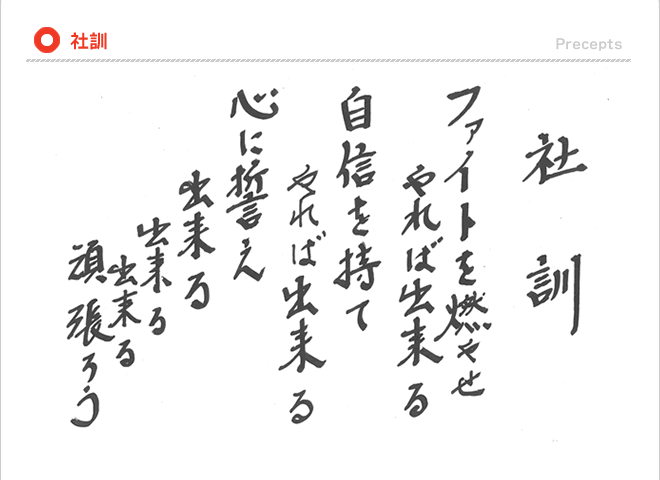 社訓
Precepts
社訓
ファイトを燃やせ
やれば出来る
自信を持て
やれば出来る
心に誓え
出来る
出来る
出来る
頑張ろう